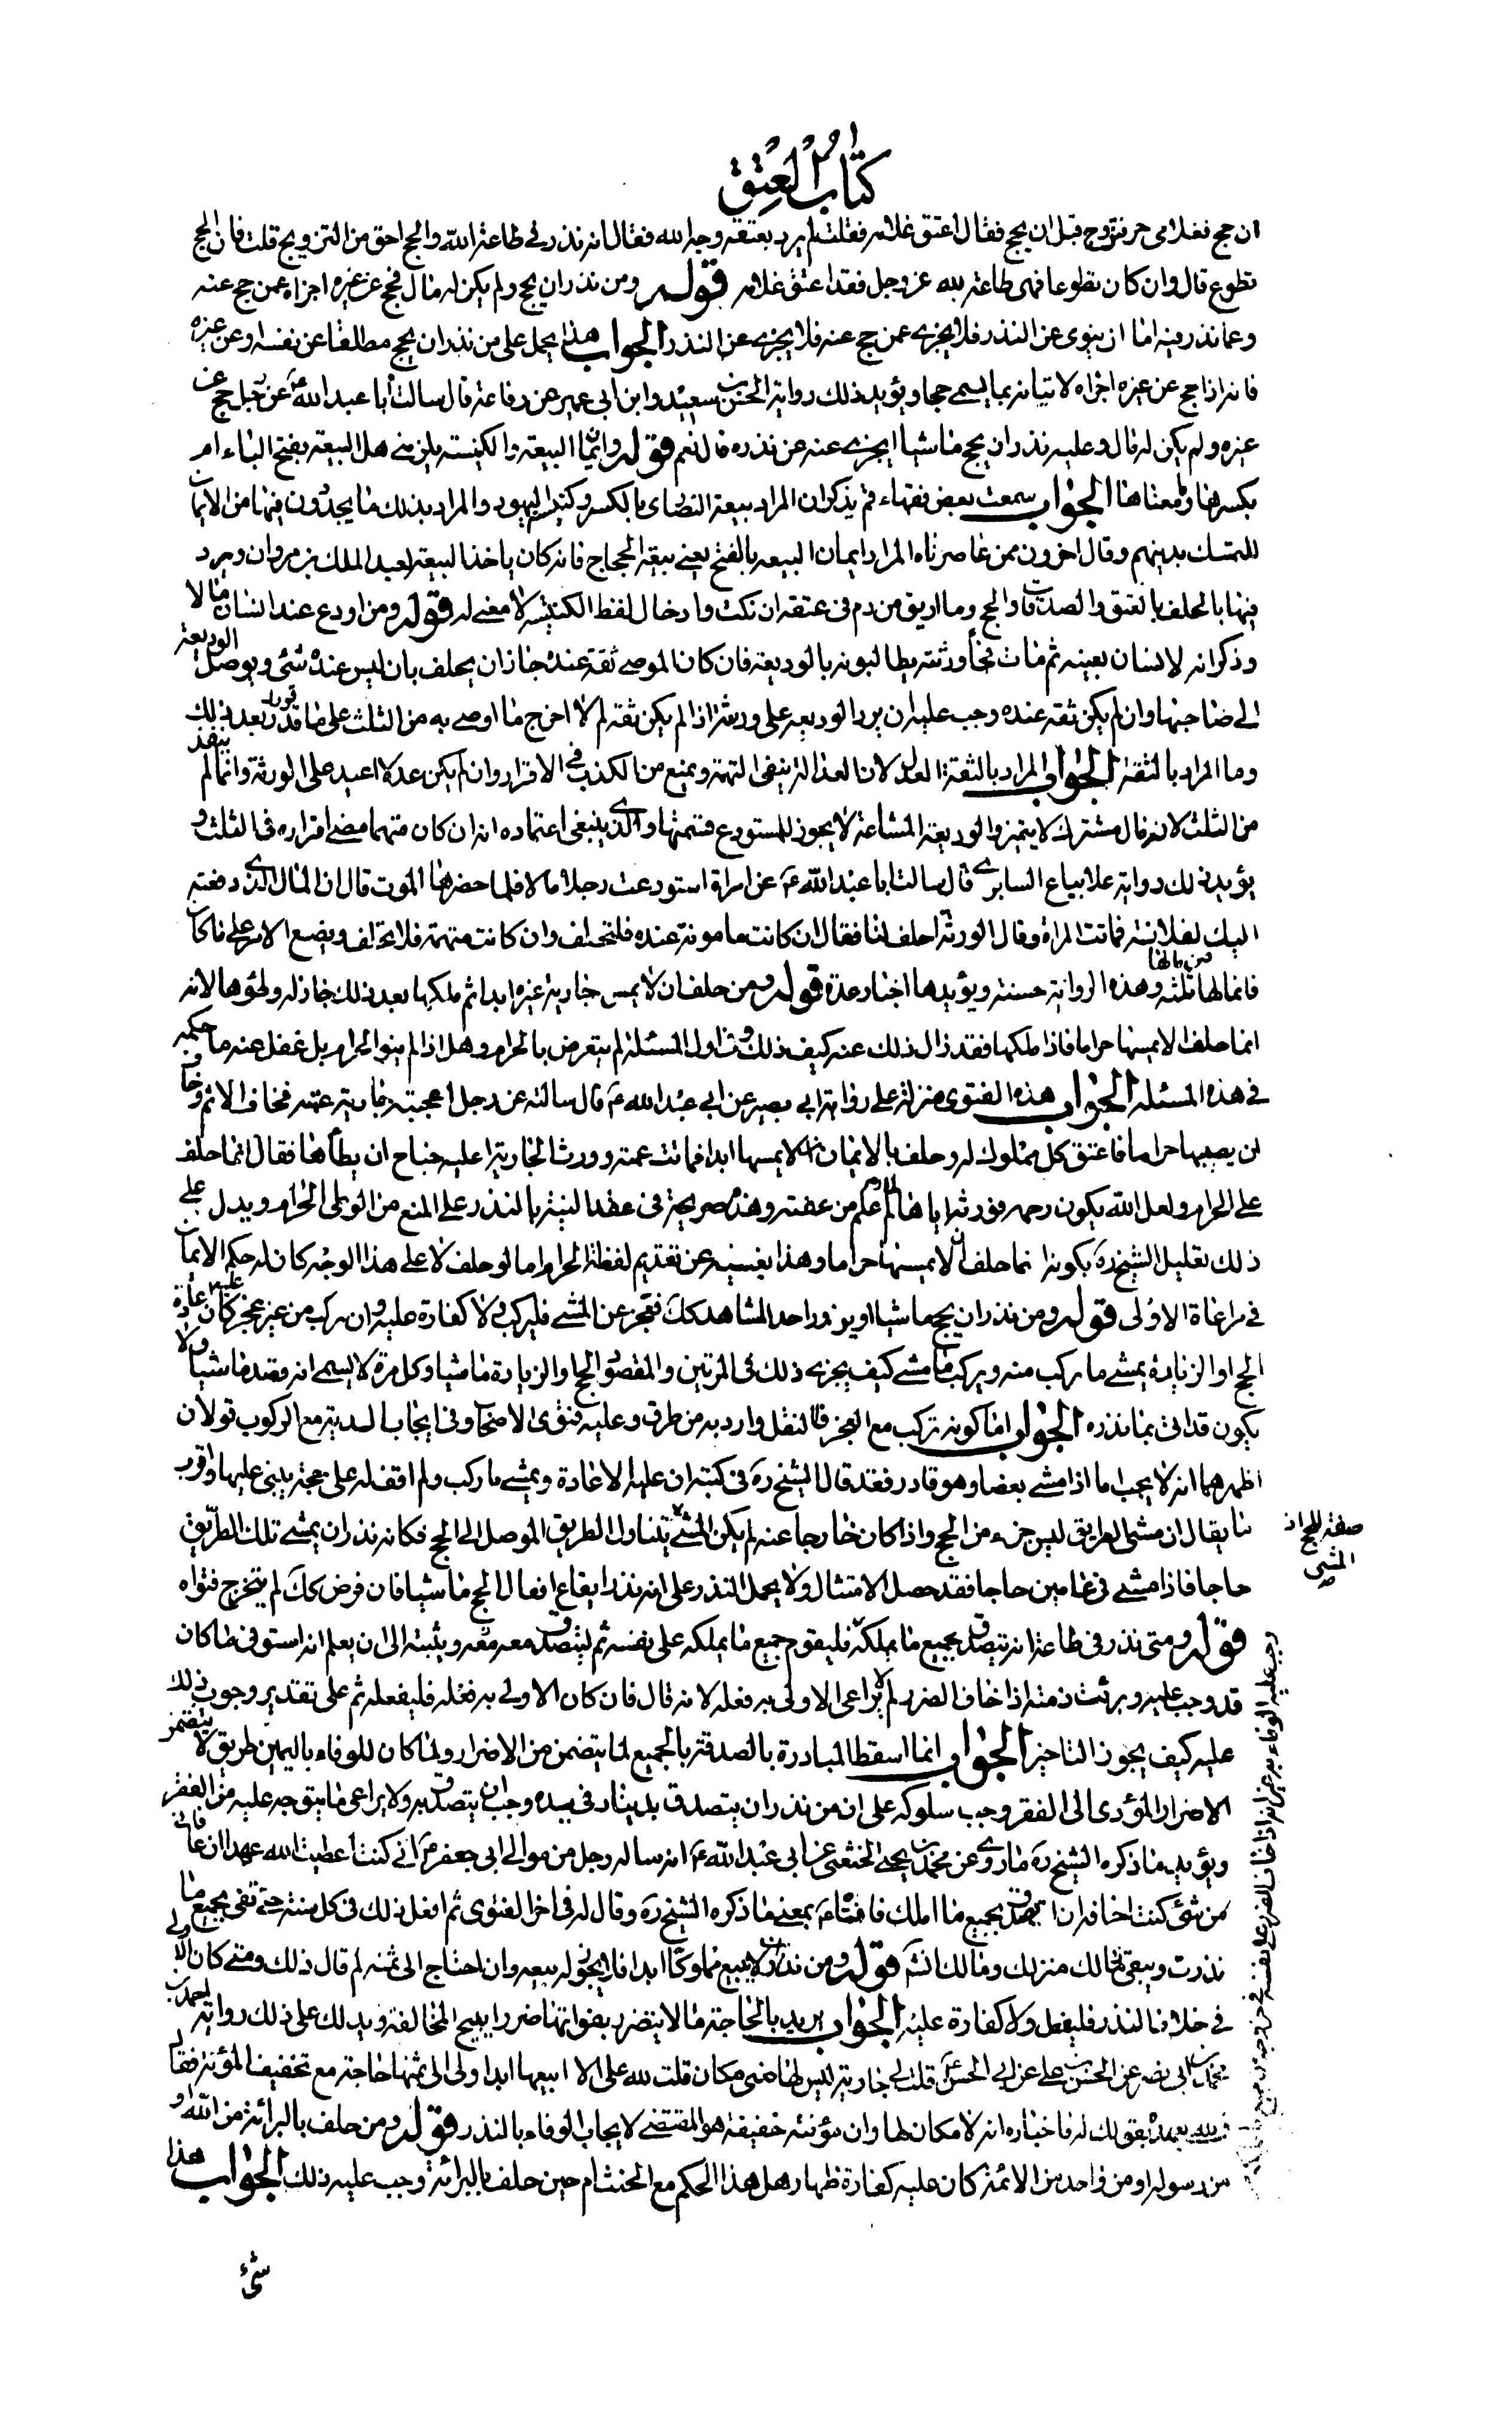 كتاب العتق
ان حج فغلامى حر فتزوج قبل ان يحج فقال اعتق غلامه فقلت لم يرد بعتقه وجه الله فقال انه نذر لى طاعة الله والحج احق من التزويج قلت فان الحج
تطوع قال وان كان تطوعا فهى طاعة لله عز وجل فقد اعتق غلامه قوله ومن نذر ان يحج ولم يكن له مال فحج عن غيره اجزاه عمن حج عنه
وعما نذر فيه اما ان ينوى عن النذر فلا يجزى عمن حج عنه فلا يجزى عن النذر الجواب هذا يحمل على من نذر ان يحج مطلقا عن نفسه او عن غيره
فانه اذا حج عن غيره اجزاه لاتيانه بما يسمى حجا ويؤيد ذلك رواية الحسين بن سعيد وابن ابى عمير عن رفاعة قال سالت أبا عبد الله ع عن رجل حج عن
غيره ولم يكن له مال وعليه نذر ان يحج ماشيا ايجزى عنه عن نذره قال نعم قوله وايمان البيعة والكنيسة يلزمنى هل البيعة بفتح الباء ام
بكسرها وما معناها الجواب سمعت بعض فقهاء قم يذكر ان المراد بيعة النصارى بالكسر وكنيسة اليهود والمراد بذلك ما يجدون فيها من الايمان
للتمسك بدينهم وقال اخرون ممن عاصرناه المراد ايمان البيعه بالفتح يعنى بيعة الحجاج فانه كان ياخذ البيعة لعبد الملك بن مروان ويرد
فيها بالحلف بالعتق والصدقات والحج وما اريق من دم فى عنقه ان نكث وادخال لفظ الكنيسة لا معنى له قوله ومن اودع عند انسان مالا
وذكر انه لانسان بعينه ثم مات فجأ ورثته يطالبونه بالوديعة فان كان الموصى ثقة عنده جاز ان يحلف بان ليس عنده شئ ويوصل الوديعة
الى صاحبها وان لم يكن ثقة عنده وجب عليه ان يرد الوديعه على ورثته اذا لم يكن ثقة لم لا اخرج ما اوصى به من الثلث على ما قد قرر بعد ذلك
وما المراد بالثقة الجواب المراد بالثقة العدل لان العدالة ينفى التهمة ويمنع من الكذب فى الاقرار وان لم يكن عدلا اعيد على الورثة وانما لم ينفذ
من الثلث لانه مال مشترك لا يتميز والوديعة المشاعة لا يجوز للمستودع قسمتها والذى ينبغى اعتماده انه ان كان متهما مضى اقراره فى الثلث و
يؤيد ذلك رواية علا بياع السابرى قال سالت ابا عبد الله ع عن امراة استودعت رجلا مالا فلما حضرها الموت قال ان المال الذى دفعته
اليك لفلانة فماتت المراة وقال الورثة احلف لنا فقال ان كانت مامونة عنده فليحلف وان كانت متهمة فلا يحلف ويضع الامر على ما كان
فانما لها من مالها ثلثه وهذه الرواية حسنة ويؤيدها اخبار عدة قوله ومن حلف ان لا يمس جارية غيره ابدا ثم ملكها بعد ذلك جاز له وطؤها لانه
انما حلف الا يمسها حراما فاذا ملكها فقد زال ذلك عنه كيف ذلك وفى اول المسئلة لم يتعرض بالحرام وهل اذا لم ينو الحرام بل غفل عنه ما حكمه
فى هذه المسئلة الجواب هذه الفتوى منزلة على رواية ابى بصير عن ابى عبد الله ع قال سالته عن رجل اعجبته جارية عمته فخاف الاثم وخاف
ان يصيبها حراما فاعتق كل مملوك له وحلف بالايمان الا يمسها ابدا فماتت عمته وورث الجارية اعليه جناح ان يطأها فقال انما حلف
على الحرام ولعل الله يكون رحمه فورثه اياها لما علم من عفته وهذه صريحة فى عقد النية بالنذر على المنع من الوطى الحرام ويدل على
ذلك تعليل الشيخ ره بكونه انما حلف ان لا يمسها حراما وهذا يغنيه عن تقديم لفظة الحرام اما لو حلف لا على هذا الوجه كان له حكم الايمان
فى مراعاة الاولى قوله ومن نذر ان يحج ماشيا او يزور احد المشاهد كك فعجز عن المشى فليركب ولا كفارة عليه وان ركب من غير عجز كان عليه اعادة
الحج او الزيارة يمشى ما ركب منه ويركب ما مشى كيف يجزى ذلك فى المرتين والمقصود الحج او الزيارة ماشيا وكل مرة لا يسمى انه قصد ماشيا ولا
يكون قد اتى بما نذره الجواب اما كونه تركب مع العجز فالنقل وارد به من طرق وعليه فتوى الاصحاب وفى ايجاب البدنة مع الركوب قولان
اظهرهما انه لا يجب اما اذا مشى بعضا وهو قادر فقد قال الشيخ ره فى كتبه ان عليه الاعادة ويمشى ما ركب ولم اقف له على حجة يبنى عليها واقرب
ما يقال ان مشى الطريق ليس جزء من الحج واذا كان خارجا عنه لم يكن المشى يتناول الطريق الموصل الى الحج فكانه نذر ان يمشى تلك الطريق
حاجا فاذا مشى فى عامين حاجا فقد حصل الامتثال ولا يحمل النذر على انه نذر ايقاع افعال الحج ماشيا فان فرض كك لم يتخرج فتواه
قوله ومتى نذر فى طاعة انه يتصدق بجميع ما يملكه فليقوم جميع ما يملكه على نفسه ثم ليتصدق معه معه ويثبته الى ان يعلم انه استوفى ما كان
قد وجب عليه وبرئت ذمته اذا خاف الضرر لم لا يراعى الاولى به فعله لانه قال فان كان الاولى به فعله فليفعله ثم على تقدير وجوب ذلك
عليه كيف يجوز التاخير الجواب انما اسقط المبادرة بالصدقة بالجميع لما يتضمن من الاضرار ولما كان للوفاء باليمين طريق لا يتضمن
الاضرار المؤدى الى الفقر وجب سلوكه على ان من نذر ان يتصدق بدينار فى يده وجب ان يتصدق به ولا يراعى ما يتوجه عليه من الفقر
ويؤيد ما ذكره الشيخ ره ما روى عن محمد بن يحيى الخثعمى عن ابى عبد الله ع انه ساله رجل من موالى ابى جعفر ع انى كنت اعطيت الله عهدا ان عافانى
من شئ كنت اخافه ان اتصدق بجميع ما املك فافتاه ع بمعنى ما ذكره الشيخ ره وقال له فى اخر الفتوى ثم افعل ذلك فى كل سنة حتى تفى بجميع ما
نذرت ويبقى لك منزلك ومالك انشم قوله ومن نذر ان لا يبيع مملوكا ابدا فلا يجوز له بيعه وان احتاج الى ثمنه لم قال ذلك ومتى كان الاولى
فى خلاف النذر فليفعل ولا كفارة عليه الجواب يريد بالحاجة ما لا يتضرر بفواتها ضررا يبيح المخالفة ويدلك على ذلك رواية احمد بن
محمد بن ابى نصر عن الحسن بن على عن ابى الحسن ع قلت لى جارية ليس لها منى مكان قلت لله على الا ابيعها ابدا ولى الى ثمنها حاجة مع تخفيف المؤنة فقال
ف لله بعهده بقولك له فاخباره انه لا مكان لها وان مؤنته خفيفة هو المقتضى لايجاب الوفاء بالنذر قوله ومن حلف بالبرائة من الله او
من رسوله او من واحد من الائمة كان عليه كفارة ظهار هل هذا الحكم مع الحنث ام حين حلف بالبرائة وجب عليه ذلك الجواب هذا
شئ
صفة للحج اذ
المشى
وجب عليه الوفاء به غير انه اذا خاف الضرر على نفسه فى خروجه من جميع